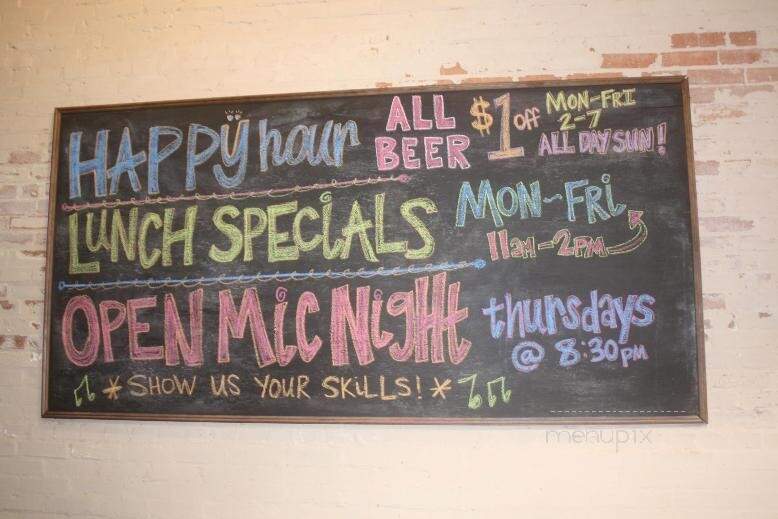 HAPPÿ hour ALL BEER $1 off MON-FRI 2-7 ALL DAY SUN!
LUNCH SPECiALS MON-FRi 11am-2PM
OPEN MiC NigHt thursdays @ 8:30PM
*SHOW US YOUR SKiLLS!*
menupix